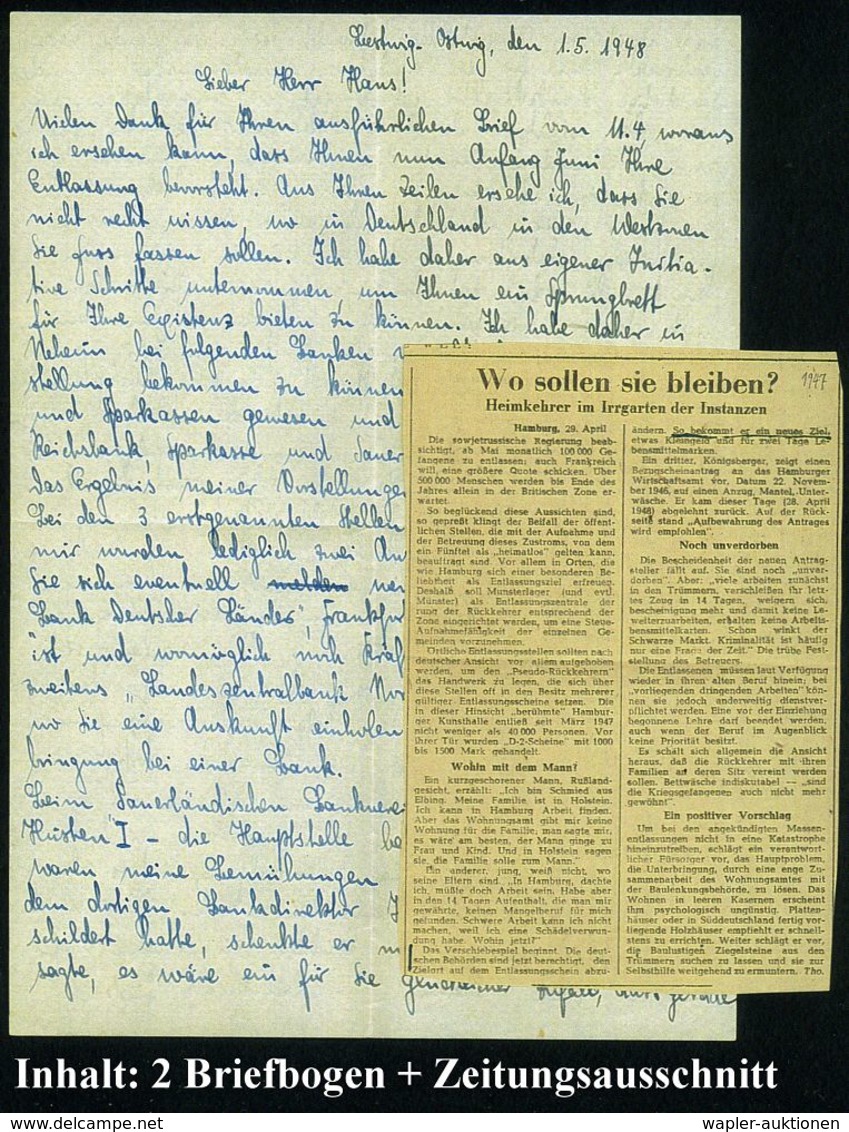 Bestwig-Ostwig, den 1.5.1948
Lieber Herr Hans!
Vielen Dank für Ihren ausführlichen Brief vom 11.4, woraus
ich ersehen kann, dass Ihnen nun Anfang Juni Ihre
Entlassung bevorsteht. Aus Ihren Zeilen ersehe ich, dass Sie
nicht recht wissen, wo in Deutschland in den Westzonen
Sie fuss fassen sollen. Ich habe daher aus eigener Initia-
tive Schritte unternommen, um Ihnen ein Sprungbrett
für Ihre Existenz bieten zu können. Ich habe daher in
Neheim bei folgenden Banken
stellung bekommen zu können
und Sparkassen gewesen und
Reichsbank, Sparkasse und Sauer
Das Ergebnis meiner Vorstellungen
Bei den 3 erstgenannten Stellen
mir wurden lediglich zwei An
Sie sich eventuell melden
Bank Deutscher Länder", Frankfur
ist und womöglich noch
zweitens "Landeszentralbank
wo Sie eine Auskunft einholen
bringung bei einer Bank.
Beim Sauerländischen Bankverei
Hüsten I - die Hauptstelle
waren meine Bemühungen
dem dortigen Bankdirektor
schildert hatte, schenkte er
sagte, es wäre ein für Sie glücklicher
Wo sollen sie bleiben?
1947
Heimkehrer im Irrgarten der Instanzen
Hamburg, 29. April
Die sowjetrussische Regierung beab-
sichtigt, ab Mai monatlich 100 000 Ge-
fangene zu entlassen; auch Frankreich
will, eine größere Quote schicken. Über
500 000 Menschen werden bis Ende des
Jahres allein in der Britischen Zone er-
wartet.
So beglückend diese Aussichten sind,
so gepreßt klingt der Beifall der öffent-
lichen Stellen, die mit der Aufnahme und
der Betreuung dieses Zustroms, von dem
ein Fünftel als „heimatlos" gelten kann,
beauftragt sind. Vor allem in Orten, die
wie Hamburg sich einer besonderen Be-
liebtheit als Entlassungsziel erfreuen.
Deshalb soll Munsterlager (und evtl.
Münster) als Entlassungszentrale der
Zone eingerichtet werden, um eine Steue-
rung der Rückkehrer entsprechend der
Aufnahmefähigkeit der einzelnen Ge-
meinden vorzunehmen.
Örtliche Entlassungsstellen sollten nach
deutscher Ansicht vor allem aufgehoben
werden, um den „Pseudo-Rückkehrern"
das Handwerk zu legen, die sich über
diese Stellen oft in den Besitz mehrerer
gültiger Entlassungsscheine setzen. Die
in dieser Hinsicht „berühmte" Hambur-
ger Kunsthalle entließ seit März 1947
nicht weniger als 40 000 Personen. Vor
ihrer Tür wurden „D-2-Scheine" mit 1000
bis 1500 Mark gehandelt.
Wohin mit dem Mann?
Ein kurzgeschorener Mann, Rußland-
gesicht, erzählt: „Ich bin Schmied aus
Elbing. Meine Familie ist in Holstein.
Ich kann in Hamburg Arbeit finden.
Aber das Wohnungsamt gibt mir keine
Wohnung für die Familie, man sagte mir,
es wäre am besten, der Mann ginge zu
Frau und Kind. Und in Holstein sagen
sie, die Familie solle zum Mann."
Ein anderer, jung, weiß nicht, wo
seine Eltern sind. „In Hamburg, dachte
ich, müßte doch Arbeit sein. Habe aber
in den 14 Tagen Aufenthalt, die man mir
gewährte, keinen Mangelberuf für mich
gefunden. Schwere Arbeit kann ich nicht
machen, weil ich eine Schädelverwun-
dung habe. Wohin jetzt?"
Das Verschiebespiel beginnt. Die deut-
schen Behörden sind jetzt berechtigt, den
Zielort auf dem Entlassungsschein abzu-
ändern. So bekommt er ein neues Ziel,
etwas Kleingeld und für zwei Tage Le-
bensmittelmarken.
Ein dritter, Königsberger, zeigt einen
Bezugscheinantrag an das Hamburger
Wirtschaftsamt vor. Datum 22. Novem-
ber 1946, auf einen Anzug, Mantel, Unter-
wäsche. Er kam dieser Tage (28. April
1948) abgelehnt zurück. Auf der Rück-
seite stand „Aufbewahrung des Antrages
wird empfohlen".
Noch unverdorben
Die Bescheidenheit der neuen Antrag-
steller fällt auf. Sie sind noch „unver-
dorben". Aber: „viele arbeiten zunächst
in den Trümmern, verschleißen ihr letz-
tes Zeug in 14 Tagen, weigern sich,
weiterzuarbeiten, erhalten keine Arbeits-
bescheinigung mehr und damit keine Le-
bensmittelkarten. Schon winkt der
Schwarze Markt. Kriminalität ist häufig
nur eine Frage der Zeit." Die trübe Fest-
stellung des Betreuers.
Die Entlassenen müssen laut Verfügung
wieder in ihren alten Beruf hinein; bei
„vorliegenden dringenden Arbeiten" kön-
nen sie jedoch anderweitig dienstver-
pflichtet werden. Eine vor der Einziehung
begonnene Lehre darf beendet werden,
auch wenn der Beruf im Augenblick
keine Priorität besitzt.
Es schält sich allgemein die Ansicht
heraus, daß die Rückkehrer mit ihren
Familien an deren Sitz vereint werden
sollen. Bettwäsche indiskutabel — „sind
die Kriegsgefangenen auch nicht mehr
gewöhnt".
Ein positiver Vorschlag
Um bei den angekündigten Massen-
entlassungen nicht in eine Katastrophe
hineinzutreiben, schlägt ein verantwort-
licher Fürsorger vor, das Hauptproblem,
die Unterbringung, durch eine enge Zu-
sammenarbeit des Wohnungsamtes mit
der Baulenkungsbehörde, zu lösen. Das
Wohnen in leeren Kasernen erscheint
ihm psychologisch ungünstig. Platten-
häuser oder in Süddeutschland fertig vor-
liegende Holzhäuser empfiehlt er schnell-
stens zu errichten. Weiter schlägt er vor,
die Baulustigen Ziegelsteine aus den
Trümmern suchen zu lassen und sie zur
Selbsthilfe weitgehend zu ermuntern. Tho.
Inhalt: 2 Briefbogen + Zeitungsausschnitt
wapler-auktionen